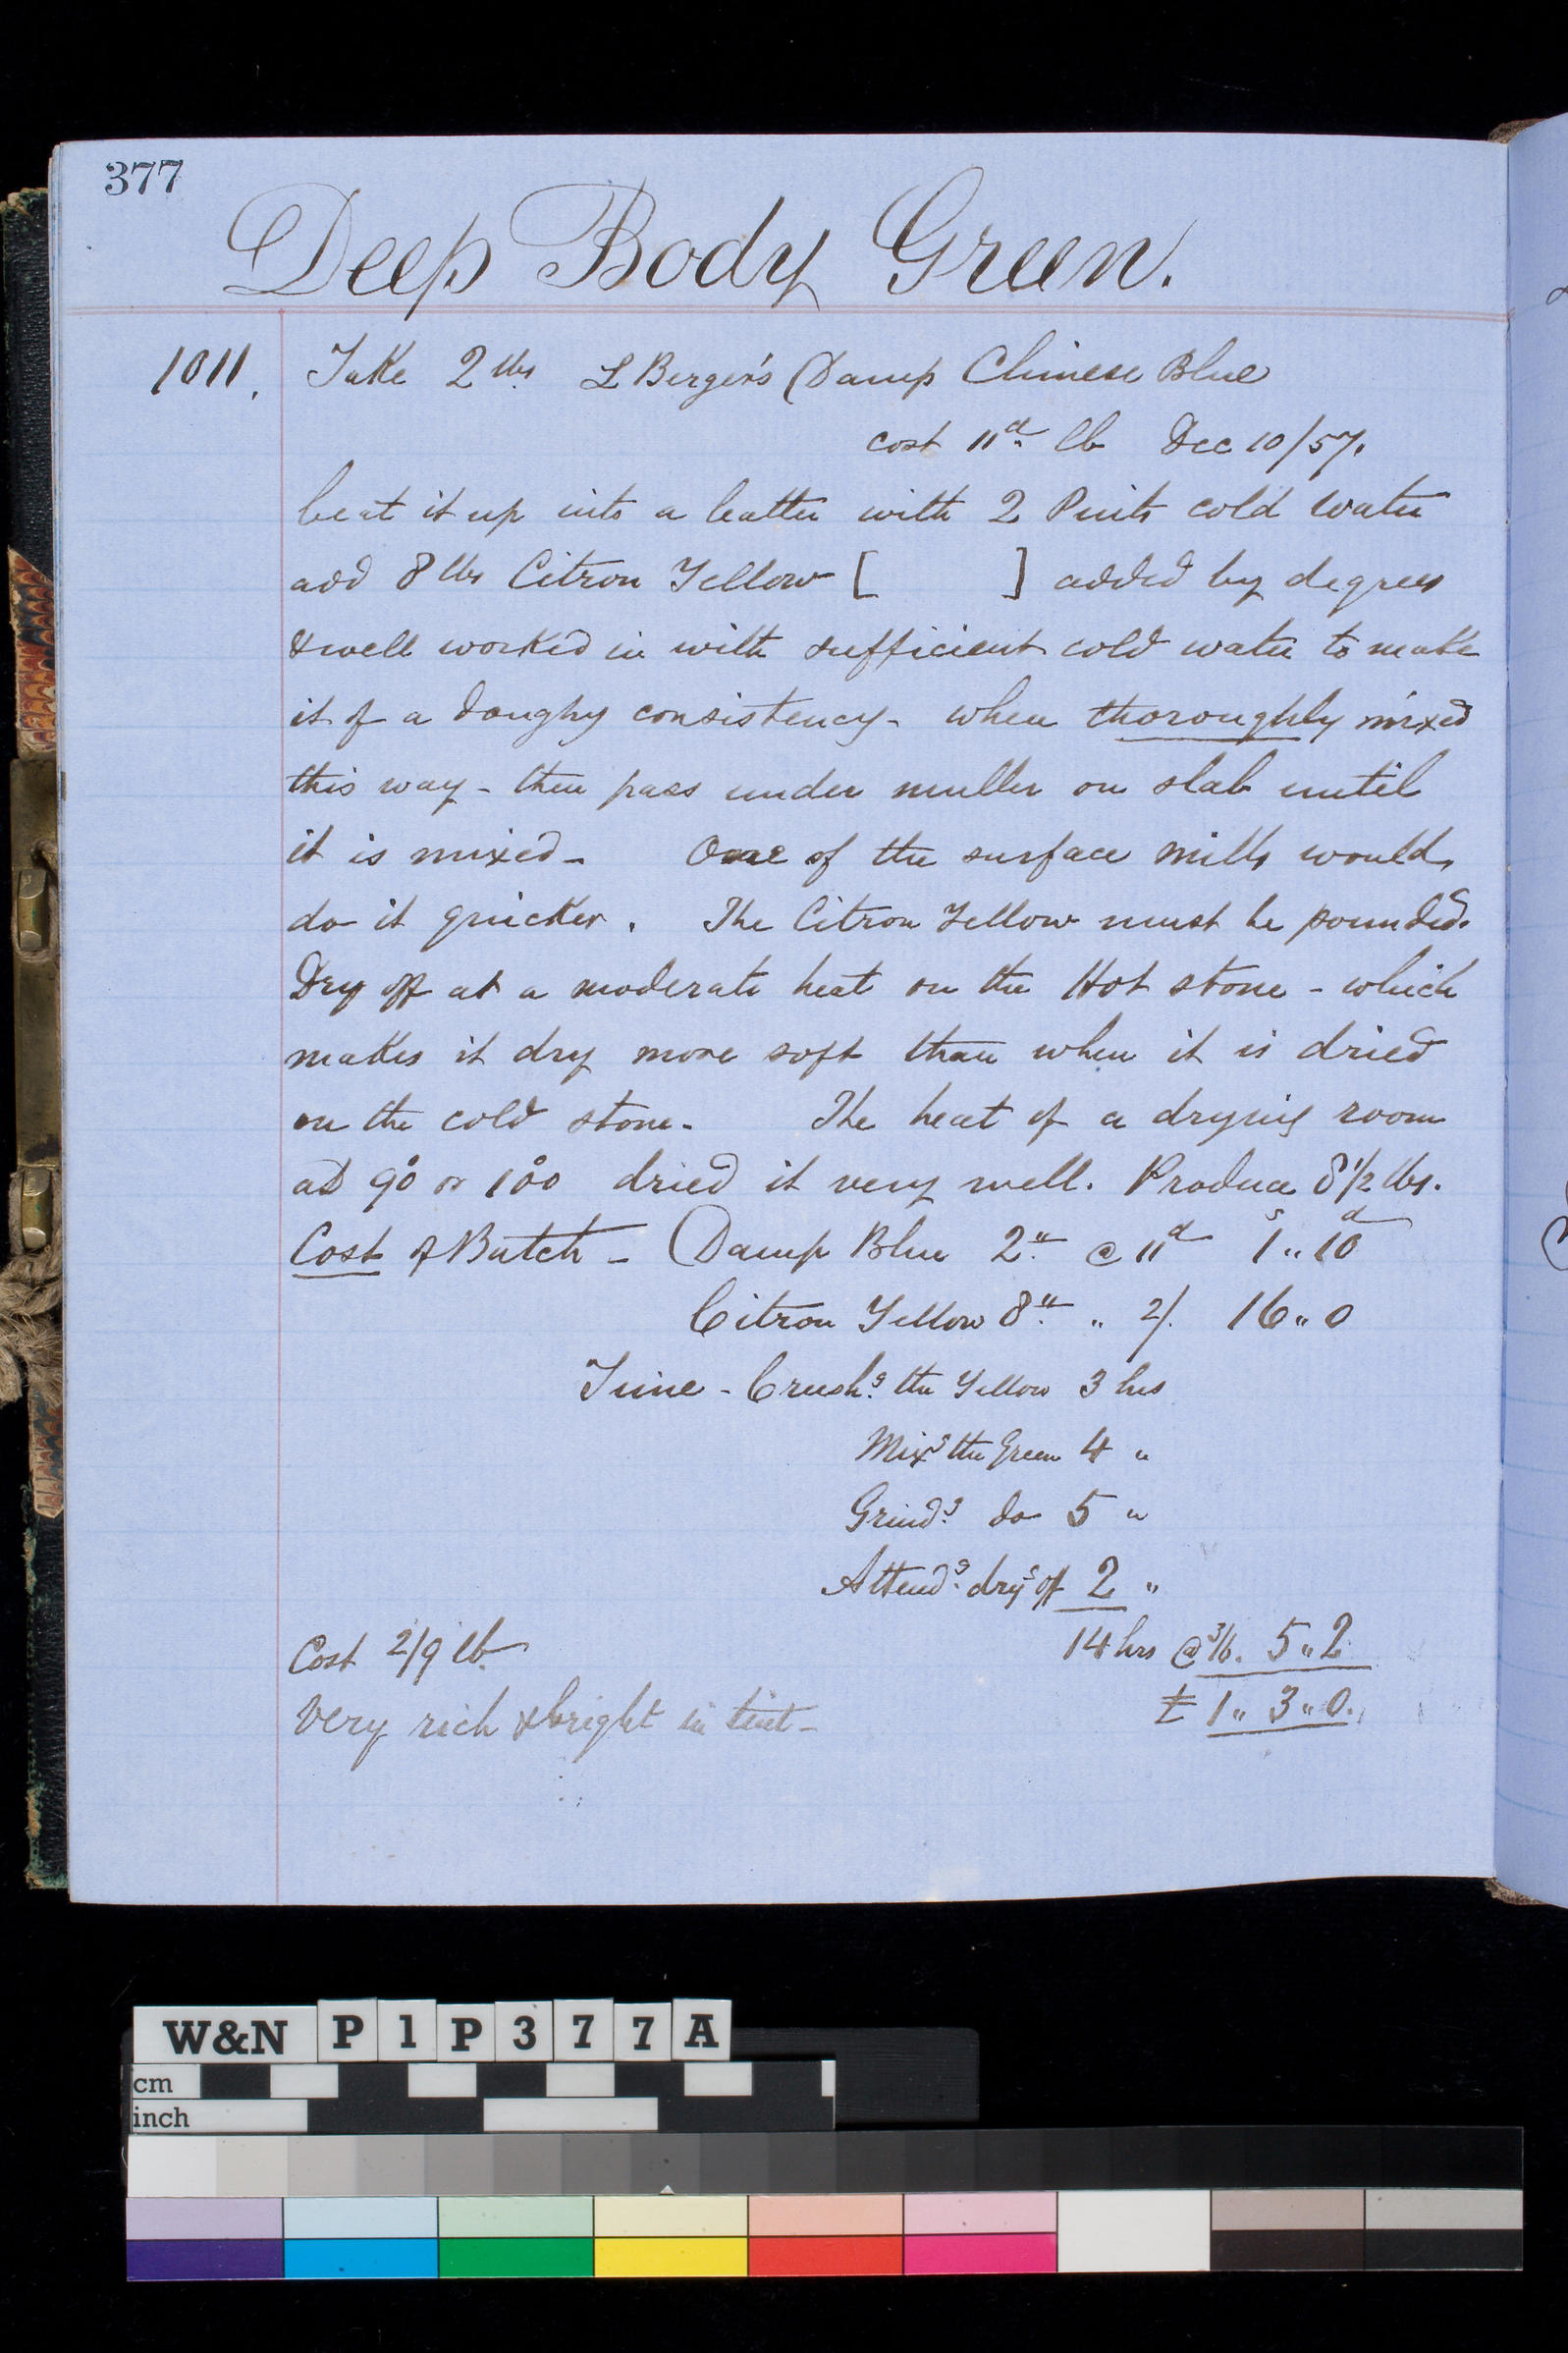 377
Deep Body Green.
1011. Take 2 lbs L Berger's Damp Chinese Blue
cost 11d lb Dec 10/57.
beat it up into a batter with 2 Pints cold water
add 8 lbs Citron Yellow [ ] added by degrees
& well worked in with sufficient cold water to make
it of a doughy consistency - when thoroughly mixed
this way - then pass under muller on slab until
it is mixed - One of the surface mills would,
do it quicker. The Citron Yellow must be pounded.
Dry off at a moderate heat on the Hot stone - which
makes it dry more soft than when it is dried
on the cold stone - The heat of a drying room
at 90° or 100° dried it very well. Produce 8 1/2 lbs.
Cost of Batch - Damp Blue 2 lb @ 11d 1s " 10d
Citron Yellow 8 lb " 2/. 16 " 0
Time - Crushg the Yellow 3 hrs
Mixg the Green 4 "
Grindg do 5 "
Attendg dryg off 2 "
14 hrs @ 3/6. 5 " 2
Cost 2/9 lb
£ 1 " 3 " 0.
Very rich & bright in tint -
W&N P1P377A
cm
inch